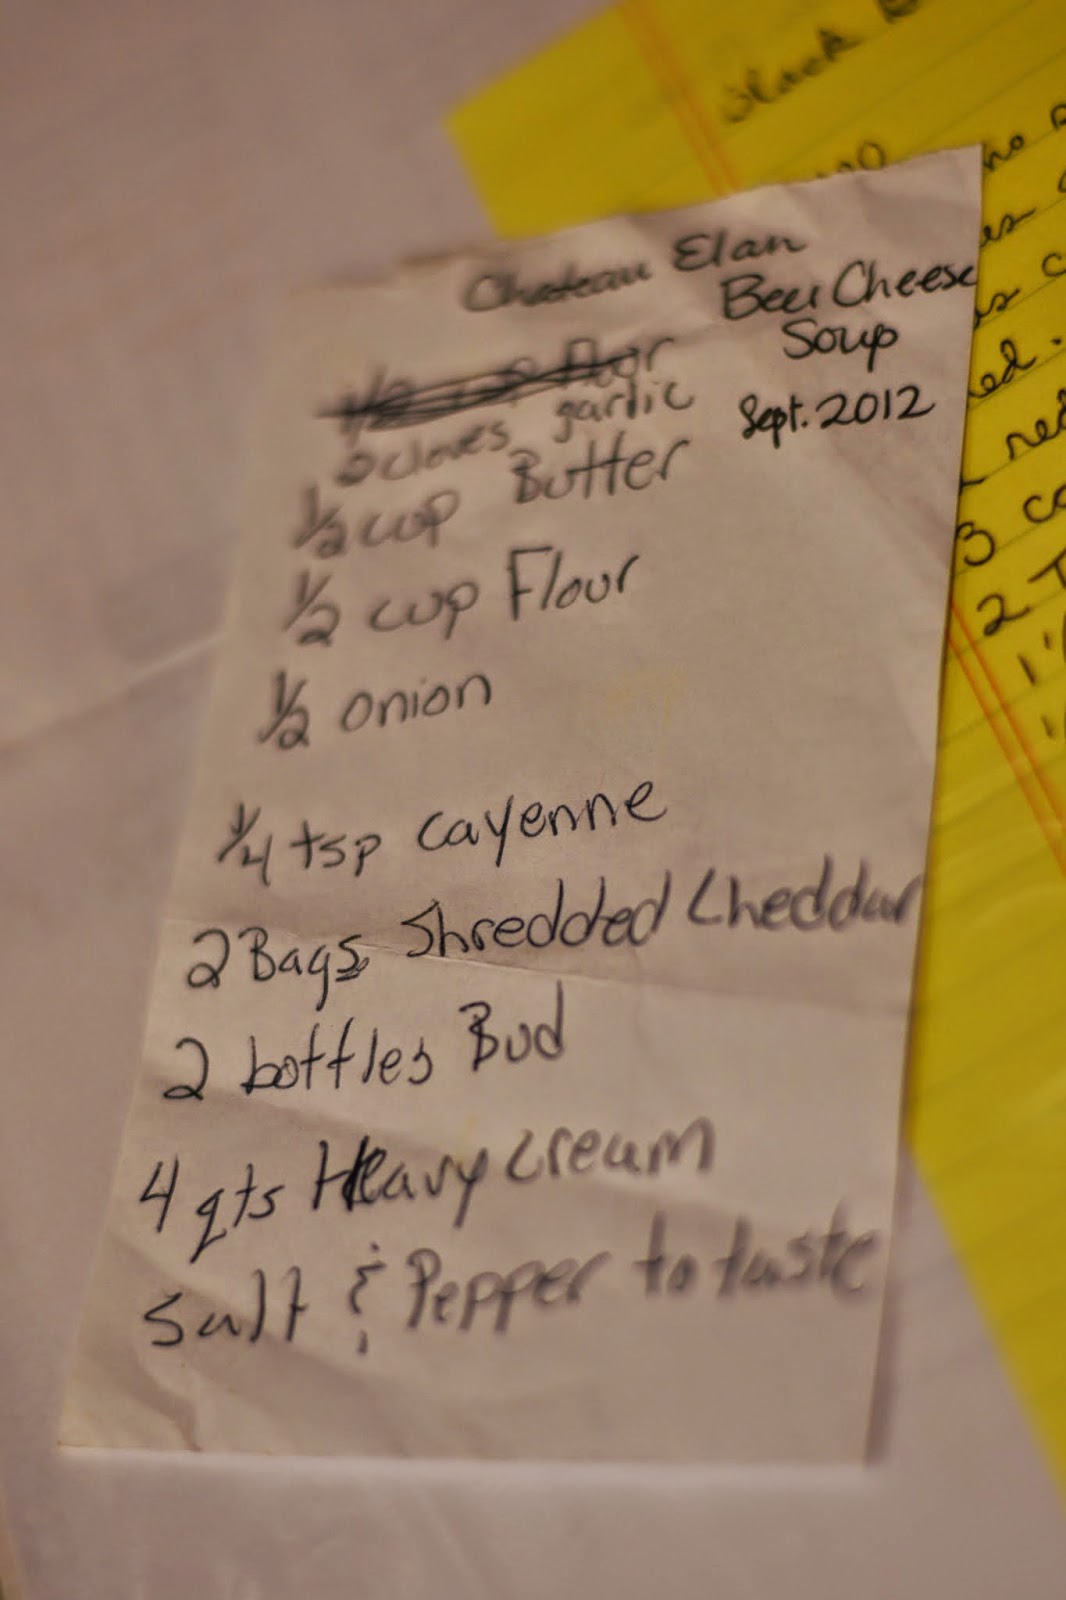 Chateau Elan
Beer Cheese
Soup
Sept. 2012
1/2 cup Floor
2 cloves garlic
1/2 cup Butter
1/2 cup Flour
1/2 onion
1/4 tsp cayenne
2 Bags Shredded Cheddar
2 bottles Bud
4 qts Heavy cream
Salt & Pepper to taste
Black
3
2 T